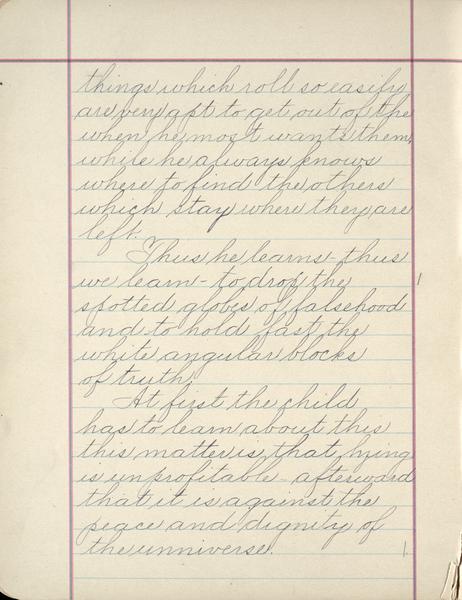 things which roll so easify
are very apt to get out of the
when he most wants them,
while he always knows
where to find the others
which stay where they are
left.
Thus he learns - thus
we learn - to drop the
spotted globes of falsehood
and to hold fast the
white angular blocks
of truth.
At first the child
has to learn about this
this matter is that lying
is unprofitable - afterward
that it is against the
peace and dignity of
the unniverse.